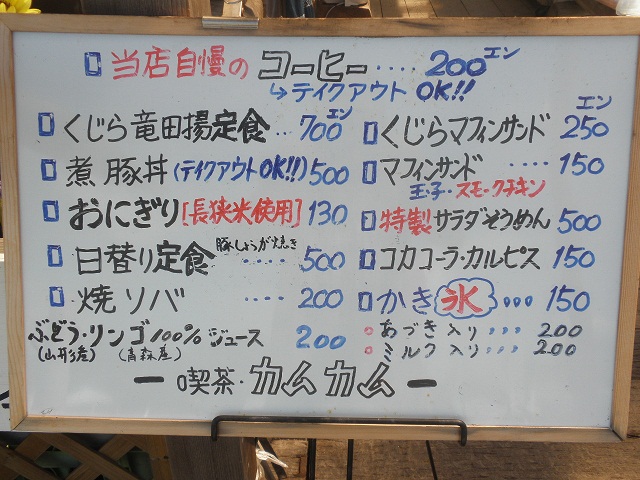 当店自慢の コーヒー ‥‥ 200エン
↳テイクアウト OK!!
くじら竜田揚定食 ‥ 700エン
煮豚丼(テイクアウトOK!!) 500
おにぎり[長狭米使用] 130
日替り定食 豚しょうが焼き ‥‥ 500
焼ソバ ‥‥ 200
ぶどう・リンゴ100%ジュース 200
(山形産) (青森産)
くじらマフィンサンド 250エン
マフィンサンド ‥‥ 150
玉子・スモークチキン
特製サラダそうめん 500
コカコーラ・カルピス 150
かき氷 ••• 150
あづき入り ••• 200
ミルク入り ••• 200
ー 喫茶・カムカム ー